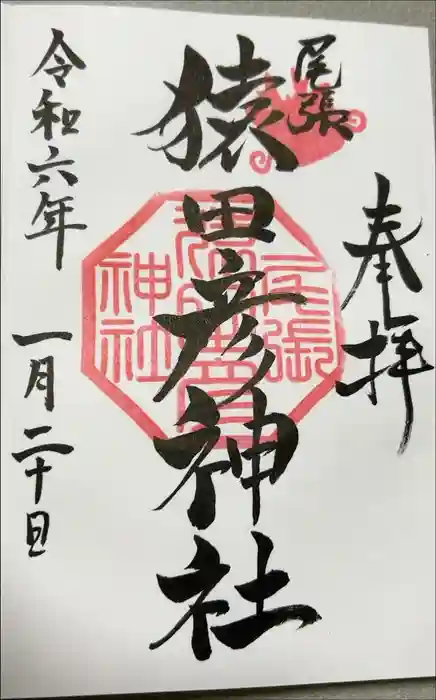 奉拝
尾張
猿田彦神社
尾張
猿田彦
神社
令和六年
一月二十日